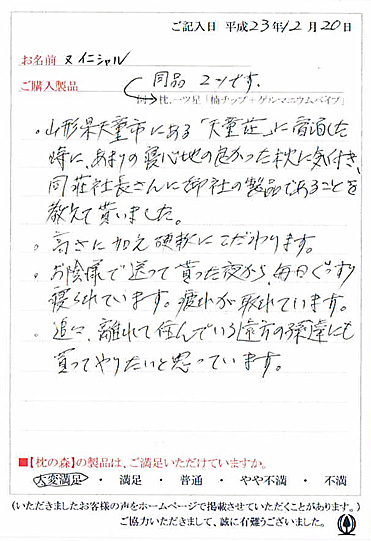 ご記入日 平成23年12月20日
お名前 ヌイニシャル
ご購入製品 同品 2コです。
例>枕.一ツ星「楠チップ+ゲルマニウムパイプ」
・山形県天童市にある「天童荘」に宿泊した
時に、あまりの寝心地の良かった枕に気付き、
同荘社長さんに御社の製品であることを
教えて貰いました。
。高さに加え硬軟にこだわります。
。お陰様で送って貰った夜から、毎日ぐっすり
寝られています。疲れが取れています。
。追々、離れて住んでいる遠方の孫達にも
買ってやりたいと思っています。
■【枕の森】の製品は、ご満足いただけていますか。
大変満足 ・ 満足 ・ 普通 ・ やや不満 ・ 不満
(いただきましたお客様の声をホームページで掲載させていただくことがあります。)
ご協力いただきまして、誠に有難うございました。